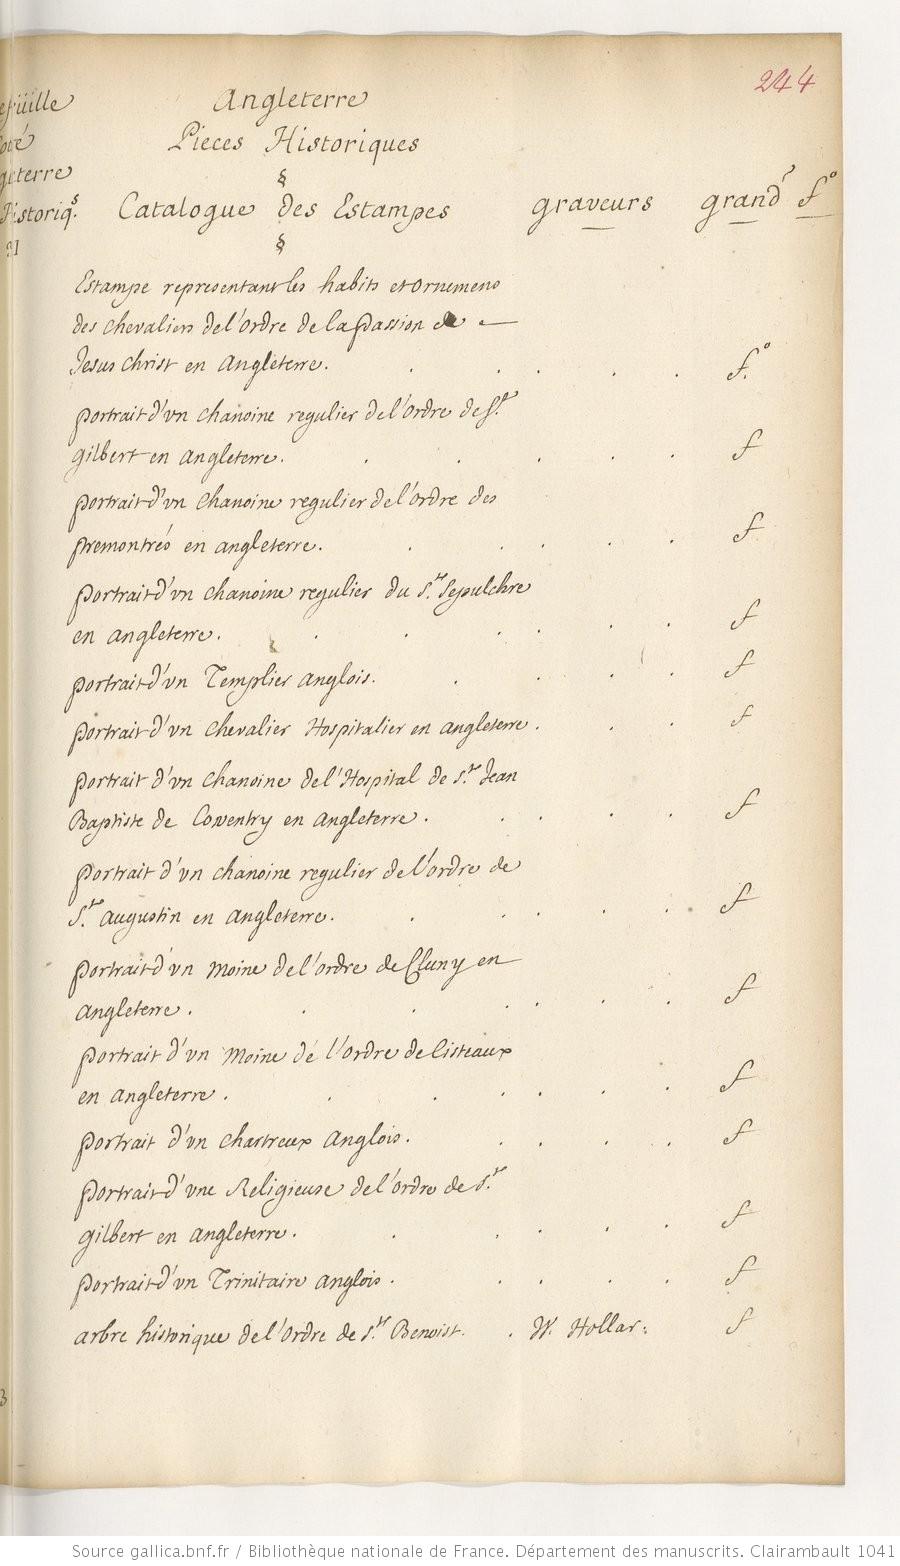 244
Angleterre
Pieces Historiques
§
Catalogue des Estampes graveurs grand.r f.o
§
Estampe representant les habits et ornemens
des chevaliers de l'ordre de la passion de
Jesus Christ en Angleterre. f.o
portrait d'vn chanoine regulier de l'ordre de St
gilbert en angleterre. f
portrait d'vn chanoine regulier de l'ordre des
premontrés en angleterre. f
portrait d'vn chanoine regulier du St Sepulchre
en angleterre. f
portrait d'vn Templier anglois. f
portrait d'vn chevalier Hospitalier en angleterre. f
portrait d'vn chanoine de l'Hospital de St Jean
Baptiste de Coventry en angleterre. f
portrait d'vn chanoine regulier de l'ordre de
St augustin en angleterre. f
portrait d'vn moine de l'ordre de Cluny en
angleterre. f
portrait d'vn moine de l'ordre de Cisteaux
en angleterre. f
portrait d'vn chartreux anglois. f
portrait d'vne Religieuse de l'ordre de St
gilbert en angleterre. f
portrait d'vn Trinitaire anglois. f
arbre historique de l'ordre de St Benoist. W. Hollar: f
Source gallica.bnf.fr / Bibliothèque nationale de France. Département des manuscrits. Clairambault 1041